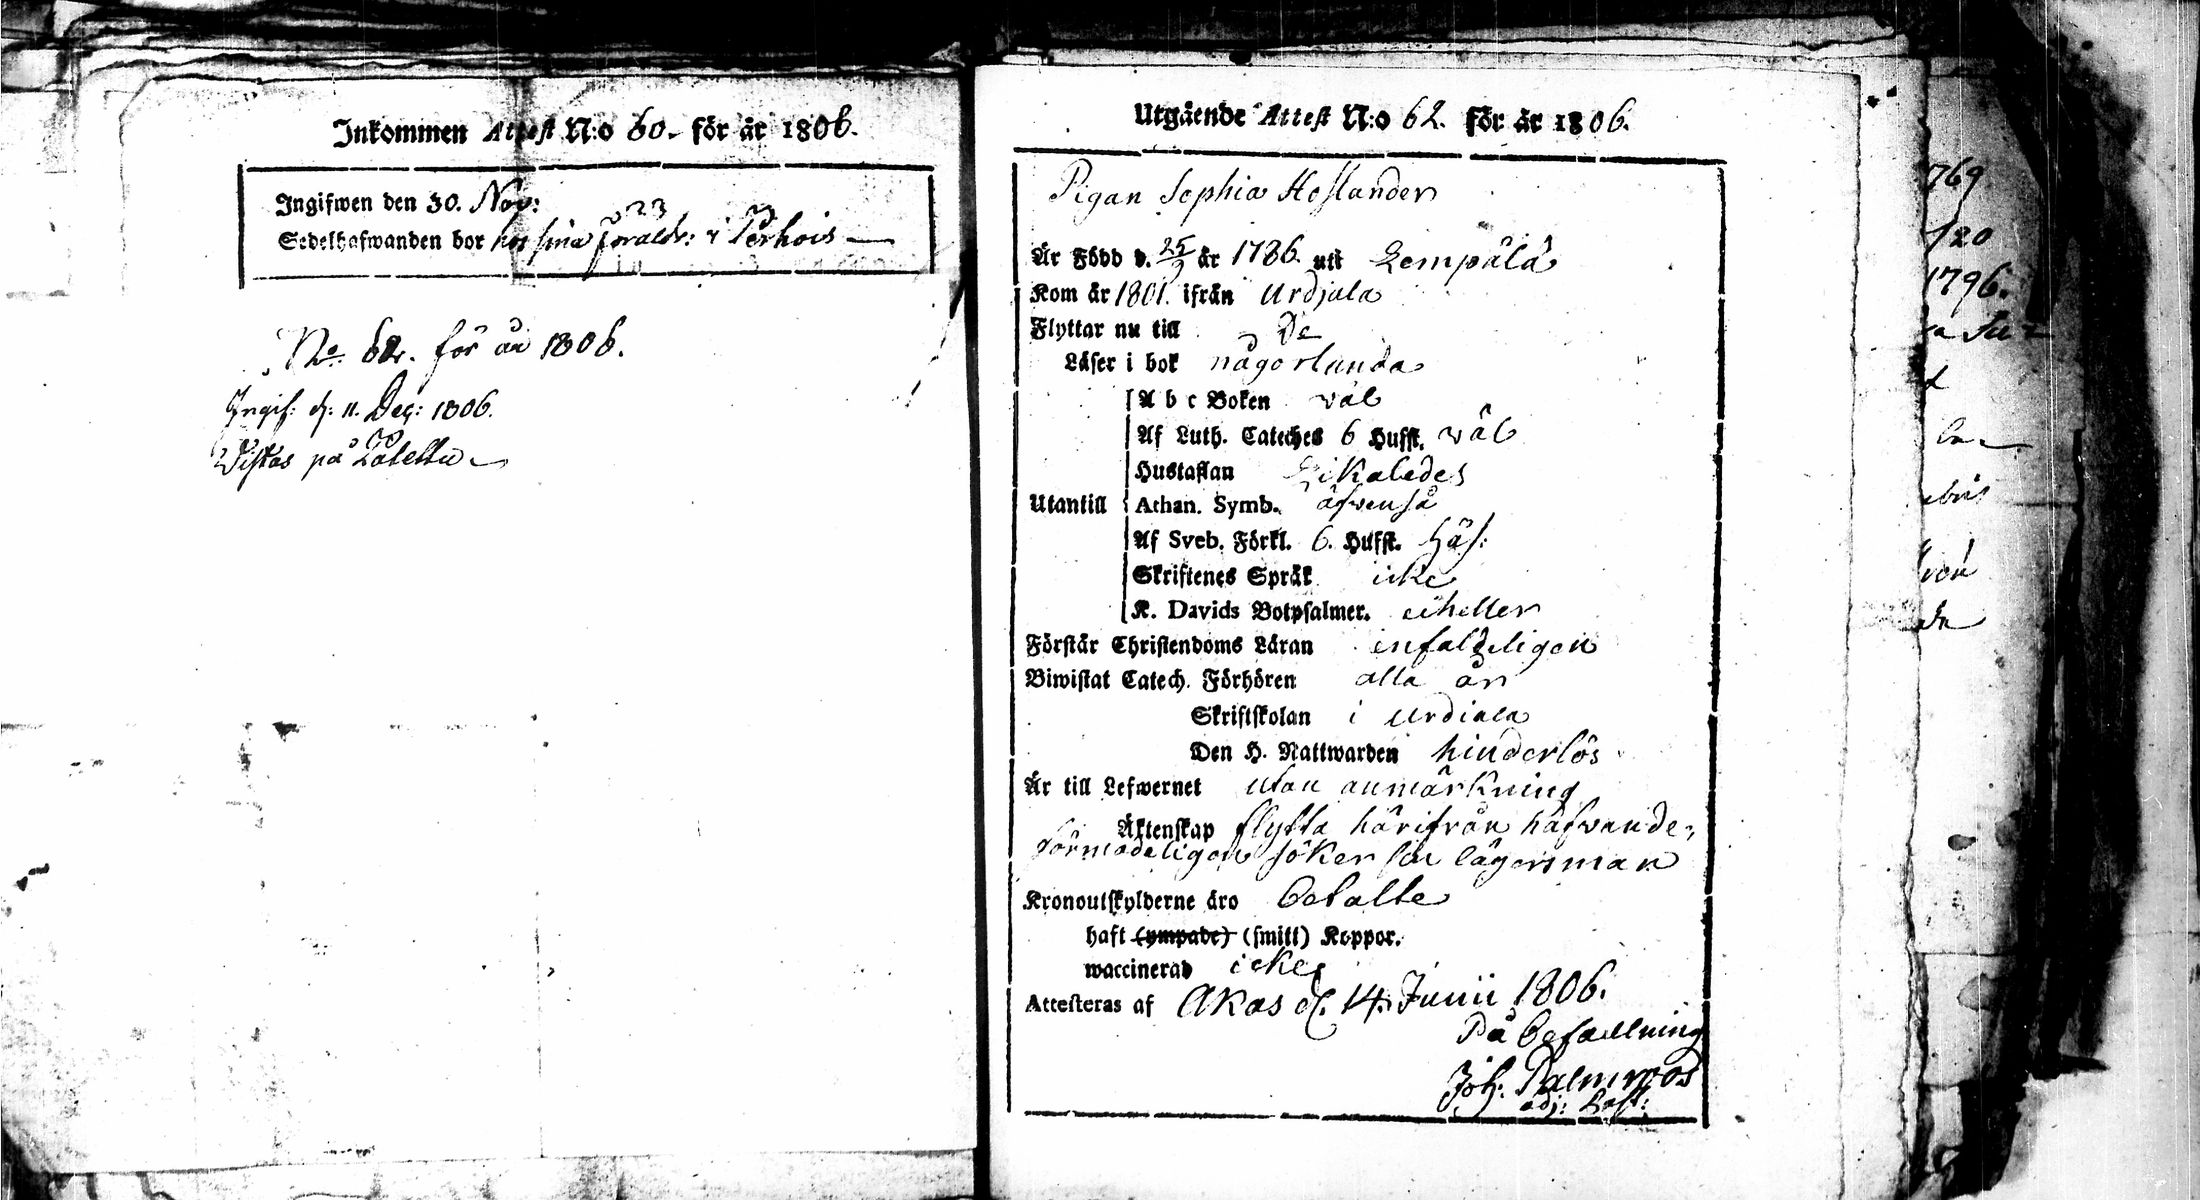 Inkommen Attest N:o 60. för år 1806.
Ingifwen den 30. Nov:
Sedelhafwanden bor hos sina föräldr: i Perhois
No. 62. för år 1806.
Ingif: d. 11. Dec: 1806.
Wistas på
Utgående Attest N:o 62. för år 1806.
Pigan Sophia Hoslander
Är Född d. 25/9 år 1786. uti Lempälä
Kom år 1801. ifrån Urdjala
Flyttar nu till De
Läser i bok någorlunda
A b c Boken wäl
Af Luth. Cateches 6 Hufst. wäl
Hustaflan Likaledes
Utantill Athan. Symb. äfwenså
Af Sveb. Förkl. 6. Hufst. häf:
Skriftenes Språk icke
K. Davids Botpsalmer. eiheller
Förstår Christendoms Läran enfaldeligen
Biwistat Catech. Förhören alla år
Skriftskolan i Urdiala
Den H. Nattwarden hinderlös
Är till Lefwernet utan anmärkning
Äktenskap flytta härifrån hafwande,
förmodeligen söker sin lägersman
Kronoutskylderne äro betalte
haft (ympade) (smitt) Koppor.
waccinerad icke
Attesteras af Akas d. 14. Junii 1806.
På befallning
Joh: Palmroos
adj:
769
120
1796.